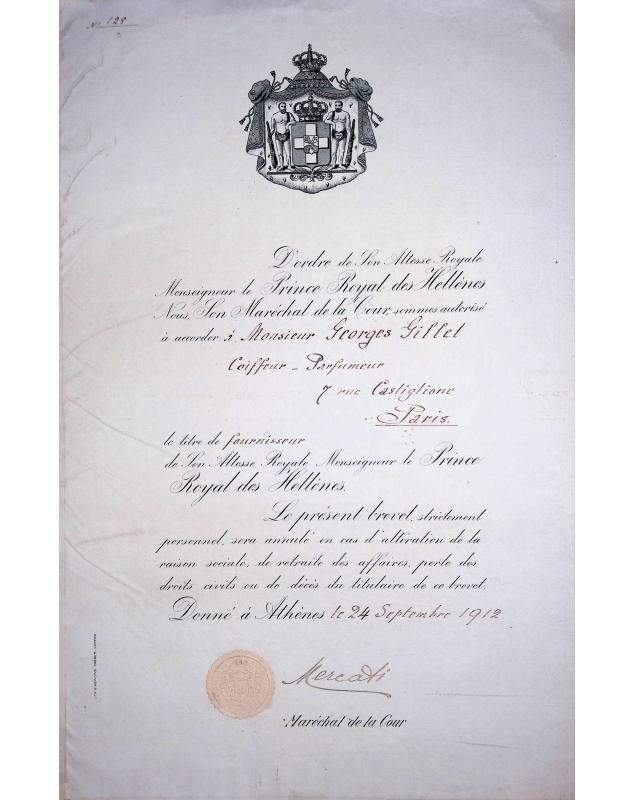 No 128
D'ordre de Son Altesse Royale
Monseigneur le Prince Royal des Hellènes
Nous, Son Maréchal de la Cour, sommes autorisé
à accorder à Monsieur Georges Gillet
Coiffeur - Parfumeur
7 rue Castiglione
Paris.
le titre de fournisseur
de Son Altesse Royale Monseigneur le Prince
Royal des Hellènes.
Le présent brevet, strictement
personnel, sera annulé en cas d'altération de la
raison sociale, de retraite des affaires, perte des
droits civils ou de décès du titulaire de ce brevet.
Donné à Athènes le 24 Septembre 1912
Mercati
Maréchal de la Cour